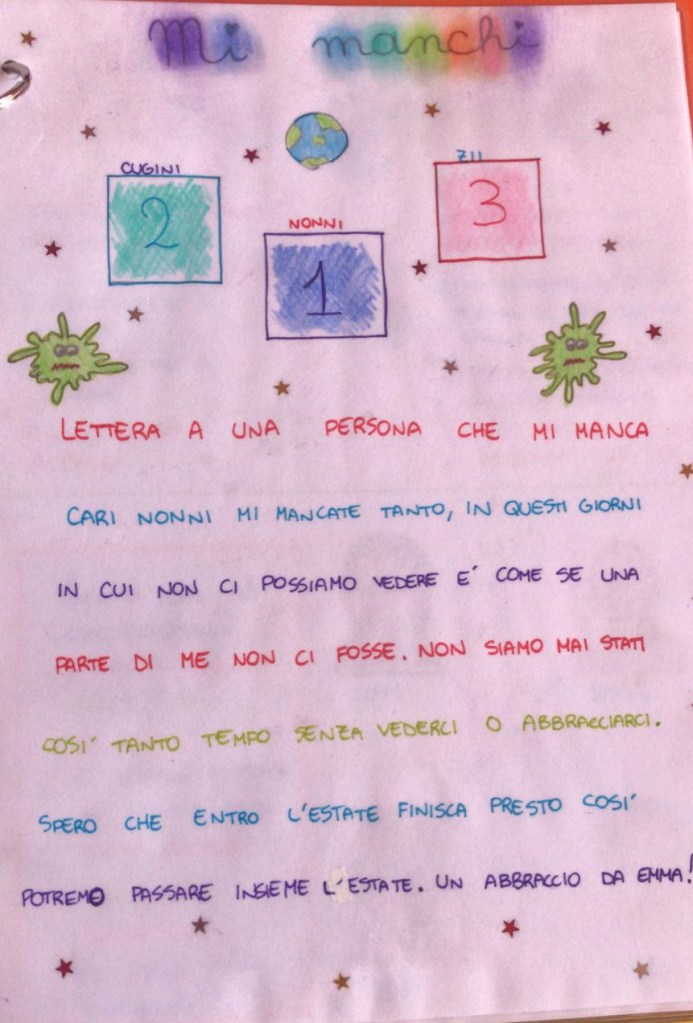 Mi manchi
CUGINI
2
NONNI
1
ZII
3
LETTERA A UNA PERSONA CHE MI MANCA
CARI NONNI MI MANCATE TANTO, IN QUESTI GIORNI
IN CUI NON CI POSSIAMO VEDERE E' COME SE UNA
PARTE DI ME NON CI FOSSE. NON SIAMO MAI STATI
COSI' TANTO TEMPO SENZA VEDERCI O ABBRACCIARCI.
SPERO CHE ENTRO L'ESTATE FINISCA PRESTO COSI'
POTREMO PASSARE INSIEME L'ESTATE. UN ABBRACCIO DA EMMA!